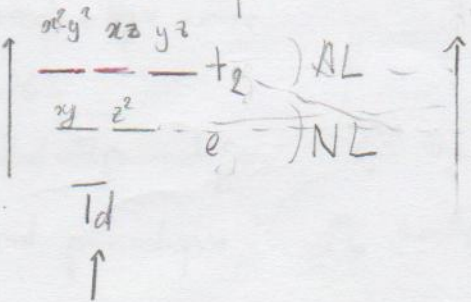 x²-y² xz yz
t₂ ) AL
xy z²
e ) NL
Td